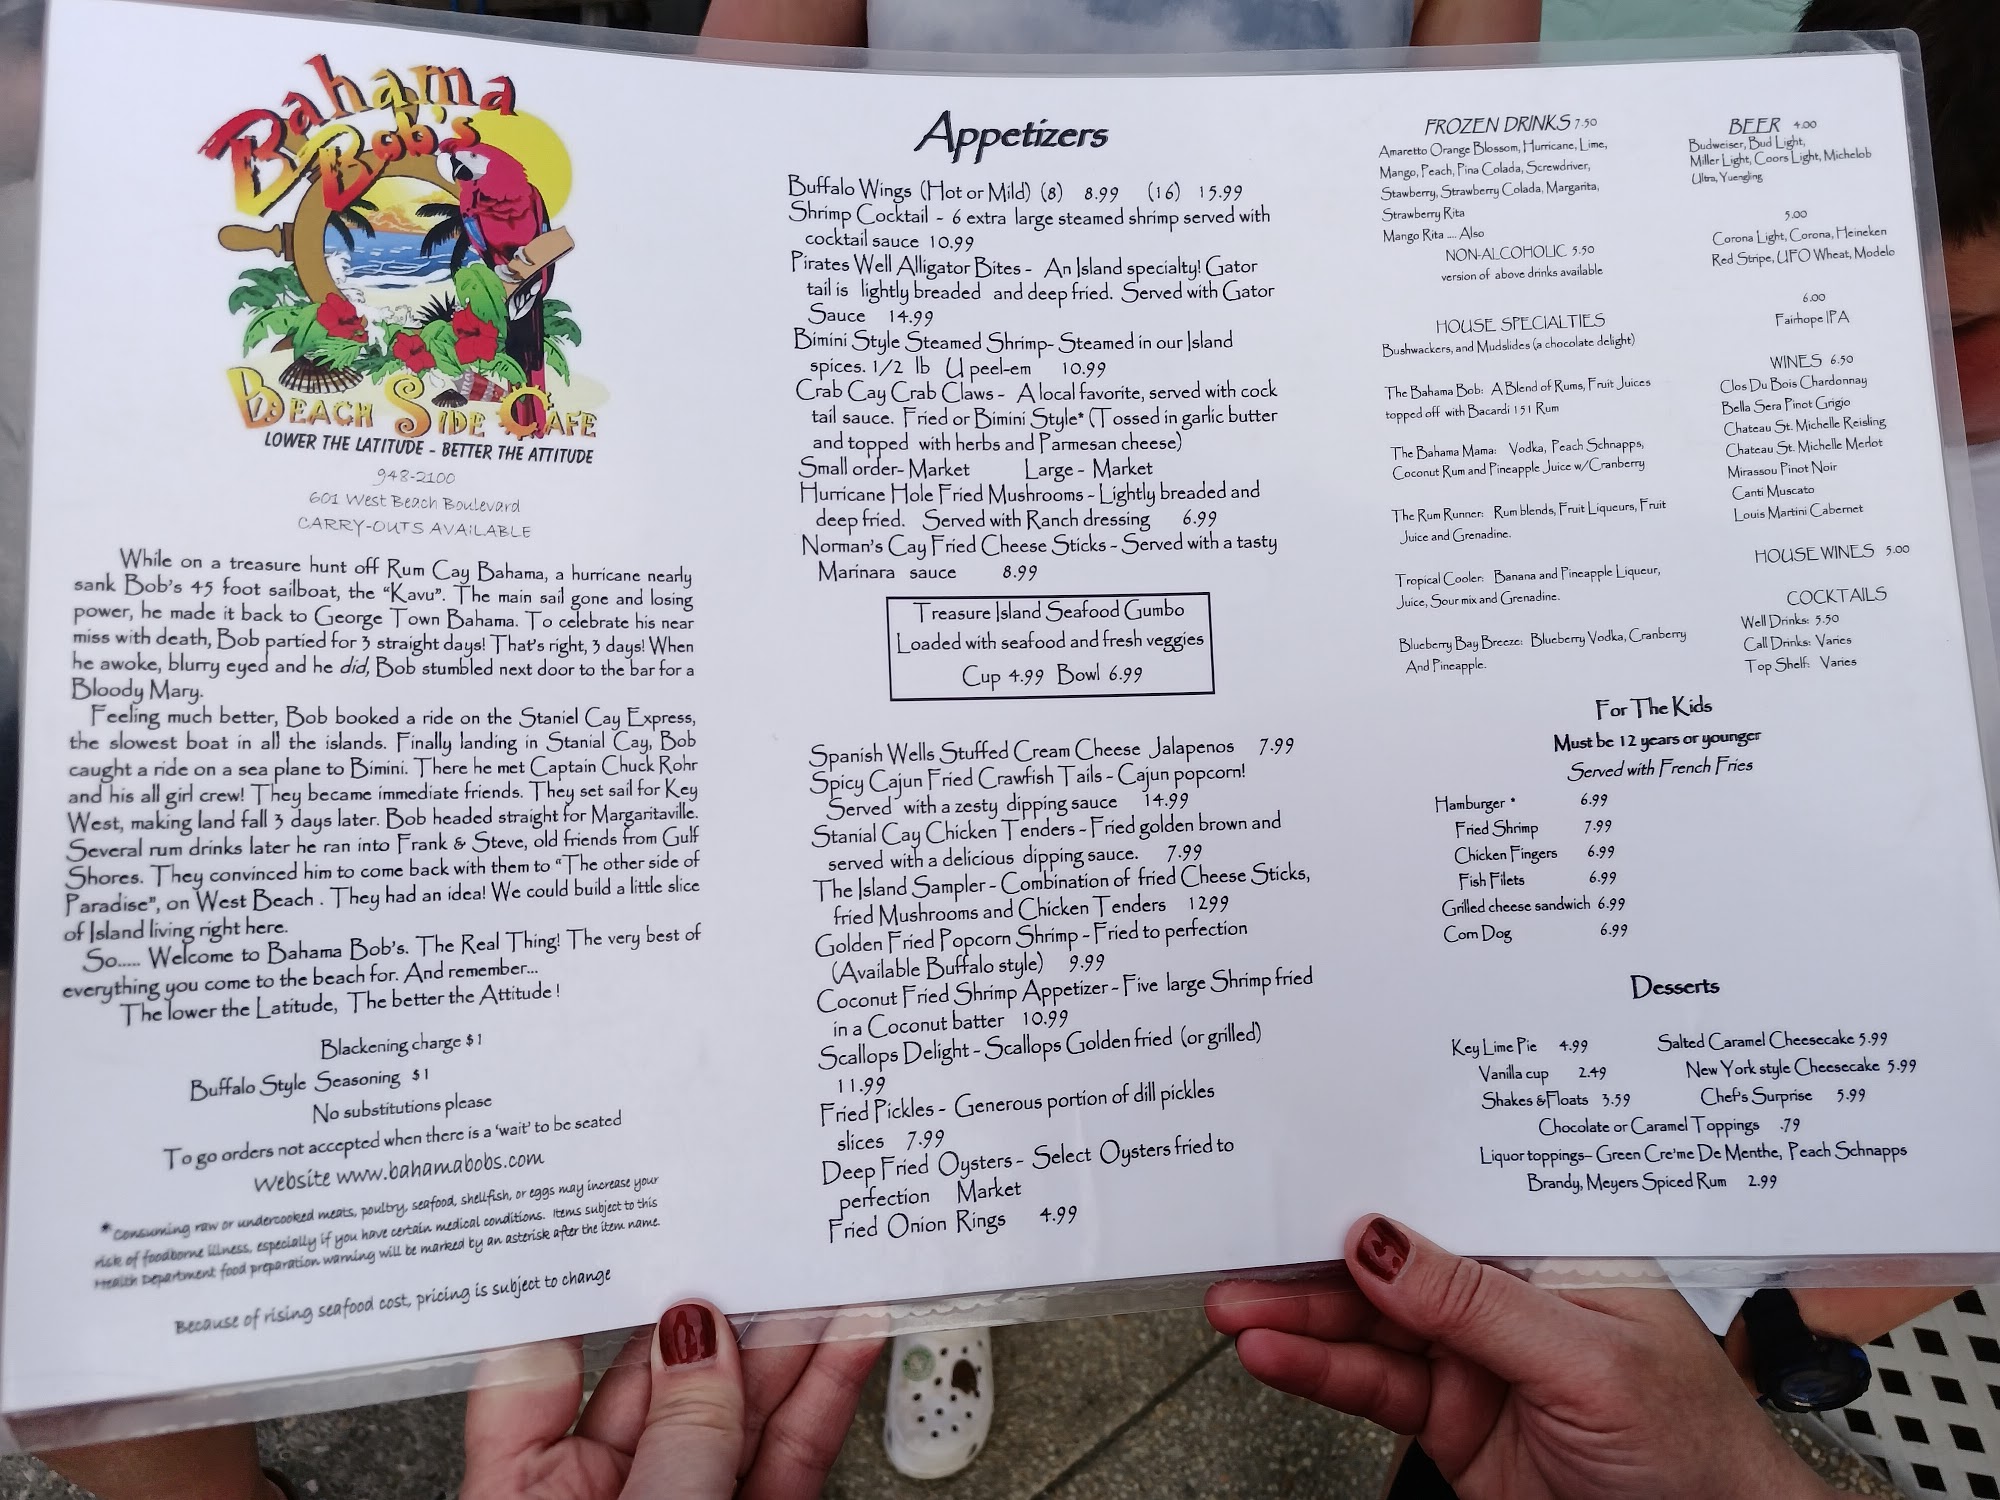 Bahama
Bob's
BEACH SIDE CAFE
LOWER THE LATITUDE - BETTER THE ATTITUDE
948-2100
601 West Beach Boulevard
CARRY-OUTS AVAILABLE
While on a treasure hunt off Rum Cay Bahama, a hurricane nearly
sank Bob's 45 foot sailboat, the "Kavu". The main sail gone and losing
power, he made it back to George Town Bahama. To celebrate his near
miss with death, Bob partied for 3 straight days! That's right, 3 days! When
he awoke, blurry eyed and he did, Bob stumbled next door to the bar for a
Bloody Mary.
Feeling much better, Bob booked a ride on the Staniel Cay Express,
the slowest boat in all the islands. Finally landing in Stanial Cay, Bob
caught a ride on a sea plane to Bimini. There he met Captain Chuck Rohr
and his all girl crew! They became immediate friends. They set sail for Key
West, making land fall 3 days later. Bob headed straight for Margaritaville.
Several rum drinks later he ran into Frank & Steve, old friends from Gulf
Shores. They convinced him to come back with them to "The other side of
Paradise", on West Beach . They had an idea! We could build a little slice
of Island living right here.
So..... Welcome to Bahama Bob's. The Real Thing! The very best of
everything you come to the beach for. And remember...
The lower the Latitude, The better the Attitude !
Blackening charge $1
Buffalo Style Seasoning $1
No substitutions please
To go orders not accepted when there is a 'wait' to be seated
Website www.bahamabobs.com
* Consuming raw or undercooked meats, poultry, seafood, shellfish, or eggs may increase your
risk of foodborne illness, especially if you have certain medical conditions. Items subject to this
Health Department food preparation warning will be marked by an asterisk after the item name.
Because of rising seafood cost, pricing is subject to change
Appetizers
Buffalo Wings (Hot or Mild) (8) 8.99 (16) 15.99
Shrimp Cocktail - 6 extra large steamed shrimp served with
cocktail sauce 10.99
Pirates Well Alligator Bites - An Island specialty! Gator
tail is lightly breaded and deep fried. Served with Gator
Sauce 14.99
Bimini Style Steamed Shrimp- Steamed in our Island
spices. 1/2 lb U peel-em 10.99
Crab Cay Crab Claws - A local favorite, served with cock
tail sauce. Fried or Bimini Style* (Tossed in garlic butter
and topped with herbs and Parmesan cheese)
Small order- Market Large - Market
Hurricane Hole Fried Mushrooms - Lightly breaded and
deep fried. Served with Ranch dressing 6.99
Norman's Cay Fried Cheese Sticks - Served with a tasty
Marinara sauce 8.99
Treasure Island Seafood Gumbo
Loaded with seafood and fresh veggies
Cup 4.99 Bowl 6.99
Spanish Wells Stuffed Cream Cheese Jalapenos 7.99
Spicy Cajun Fried Crawfish Tails - Cajun popcorn!
Served with a zesty dipping sauce 14.99
Stanial Cay Chicken Tenders - Fried golden brown and
served with a delicious dipping sauce. 7.99
The Island Sampler - Combination of fried Cheese Sticks,
fried Mushrooms and Chicken Tenders 1299
Golden Fried Popcorn Shrimp - Fried to perfection
(Available Buffalo style) 9.99
Coconut Fried Shrimp Appetizer - Five large Shrimp fried
in a Coconut batter 10.99
Scallops Delight - Scallops Golden fried (or grilled)
11.99
Fried Pickles - Generous portion of dill pickles
slices 7.99
Deep Fried Oysters - Select Oysters fried to
perfection Market
Fried Onion Rings 4.99
FROZEN DRINKS 7.50
Amaretto Orange Blossom, Hurricane, Lime,
Mango, Peach, Pina Colada, Screwdriver,
Stawberry, Strawberry Colada, Margarita,
Strawberry Rita
Mango Rita .... Also
NON-ALCOHOLIC 5.50
version of above drinks available
HOUSE SPECIALTIES
Bushwackers, and Mudslides (a chocolate delight)
The Bahama Bob: A Blend of Rums, Fruit Juices
topped off with Bacardi 151 Rum
The Bahama Mama: Vodka, Peach Schnapps,
Coconut Rum and Pineapple Juice w/Cranberry
The Rum Runner: Rum blends, Fruit Liqueurs, Fruit
Juice and Grenadine.
Tropical Cooler: Banana and Pineapple Liqueur,
Juice, Sour mix and Grenadine.
Blueberry Bay Breeze: Blueberry Vodka, Cranberry
And Pineapple.
BEER 4.00
Budweiser, Bud Light,
Miller Light, Coors Light, Michelob
Ultra, Yuengling
5.00
Corona Light, Corona, Heineken
Red Stripe, UFO Wheat, Modelo
6.00
Fairhope IPA
WINES 6.50
Clos Du Bois Chardonnay
Bella Sera Pinot Grigio
Chateau St. Michelle Reisling
Chateau St. Michelle Merlot
Mirassou Pinot Noir
Canti Muscato
Louis Martini Cabernet
HOUSE WINES 5.00
COCKTAILS
Well Drinks: 5.50
Call Drinks: Varies
Top Shelf: Varies
For The Kids
Must be 12 years or younger
Served with French Fries
Hamburger * 6.99
Fried Shrimp 7.99
Chicken Fingers 6.99
Fish Filets 6.99
Grilled cheese sandwich 6.99
Corn Dog 6.99
Desserts
Key Lime Pie 4.99 Salted Caramel Cheesecake 5.99
Vanilla cup 2.49 New York style Cheesecake 5.99
Shakes & Floats 3.59 Chef's Surprise 5.99
Chocolate or Caramel Toppings .79
Liquor toppings- Green Cre'me De Menthe, Peach Schnapps
Brandy, Meyers Spiced Rum 2.99